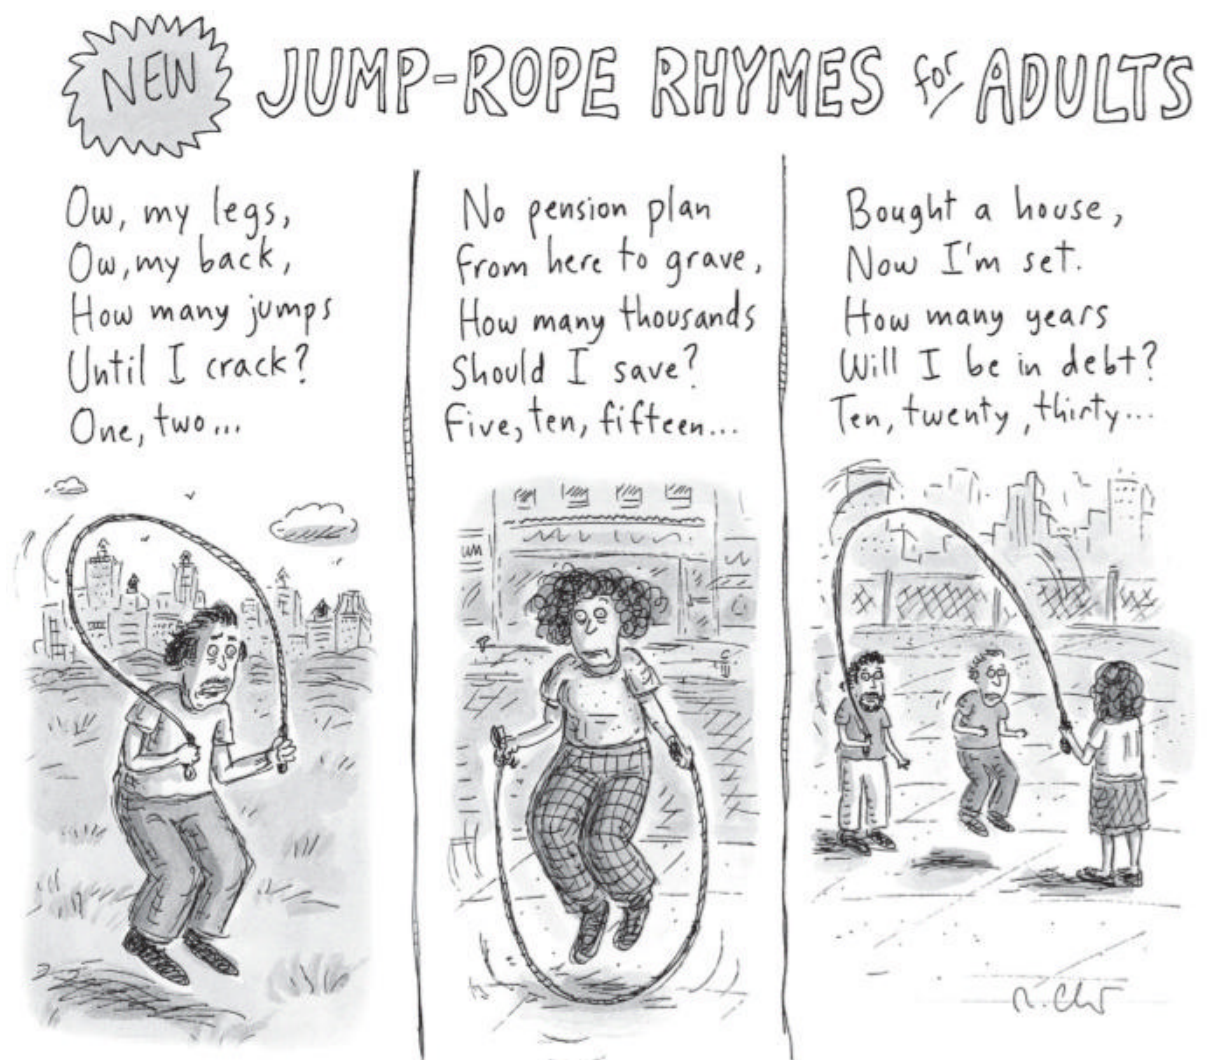 NEW
JUMP-ROPE RHYMES for ADULTS
Ow, my legs,
Ow, my back,
How many jumps
Until I crack?
One, two...
No pension plan
From here to grave,
How many thousands
Should I save?
Five, ten, fifteen...
Bought a house,
Now I'm set.
How many years
Will I be in debt?
Ten, twenty, thirty...